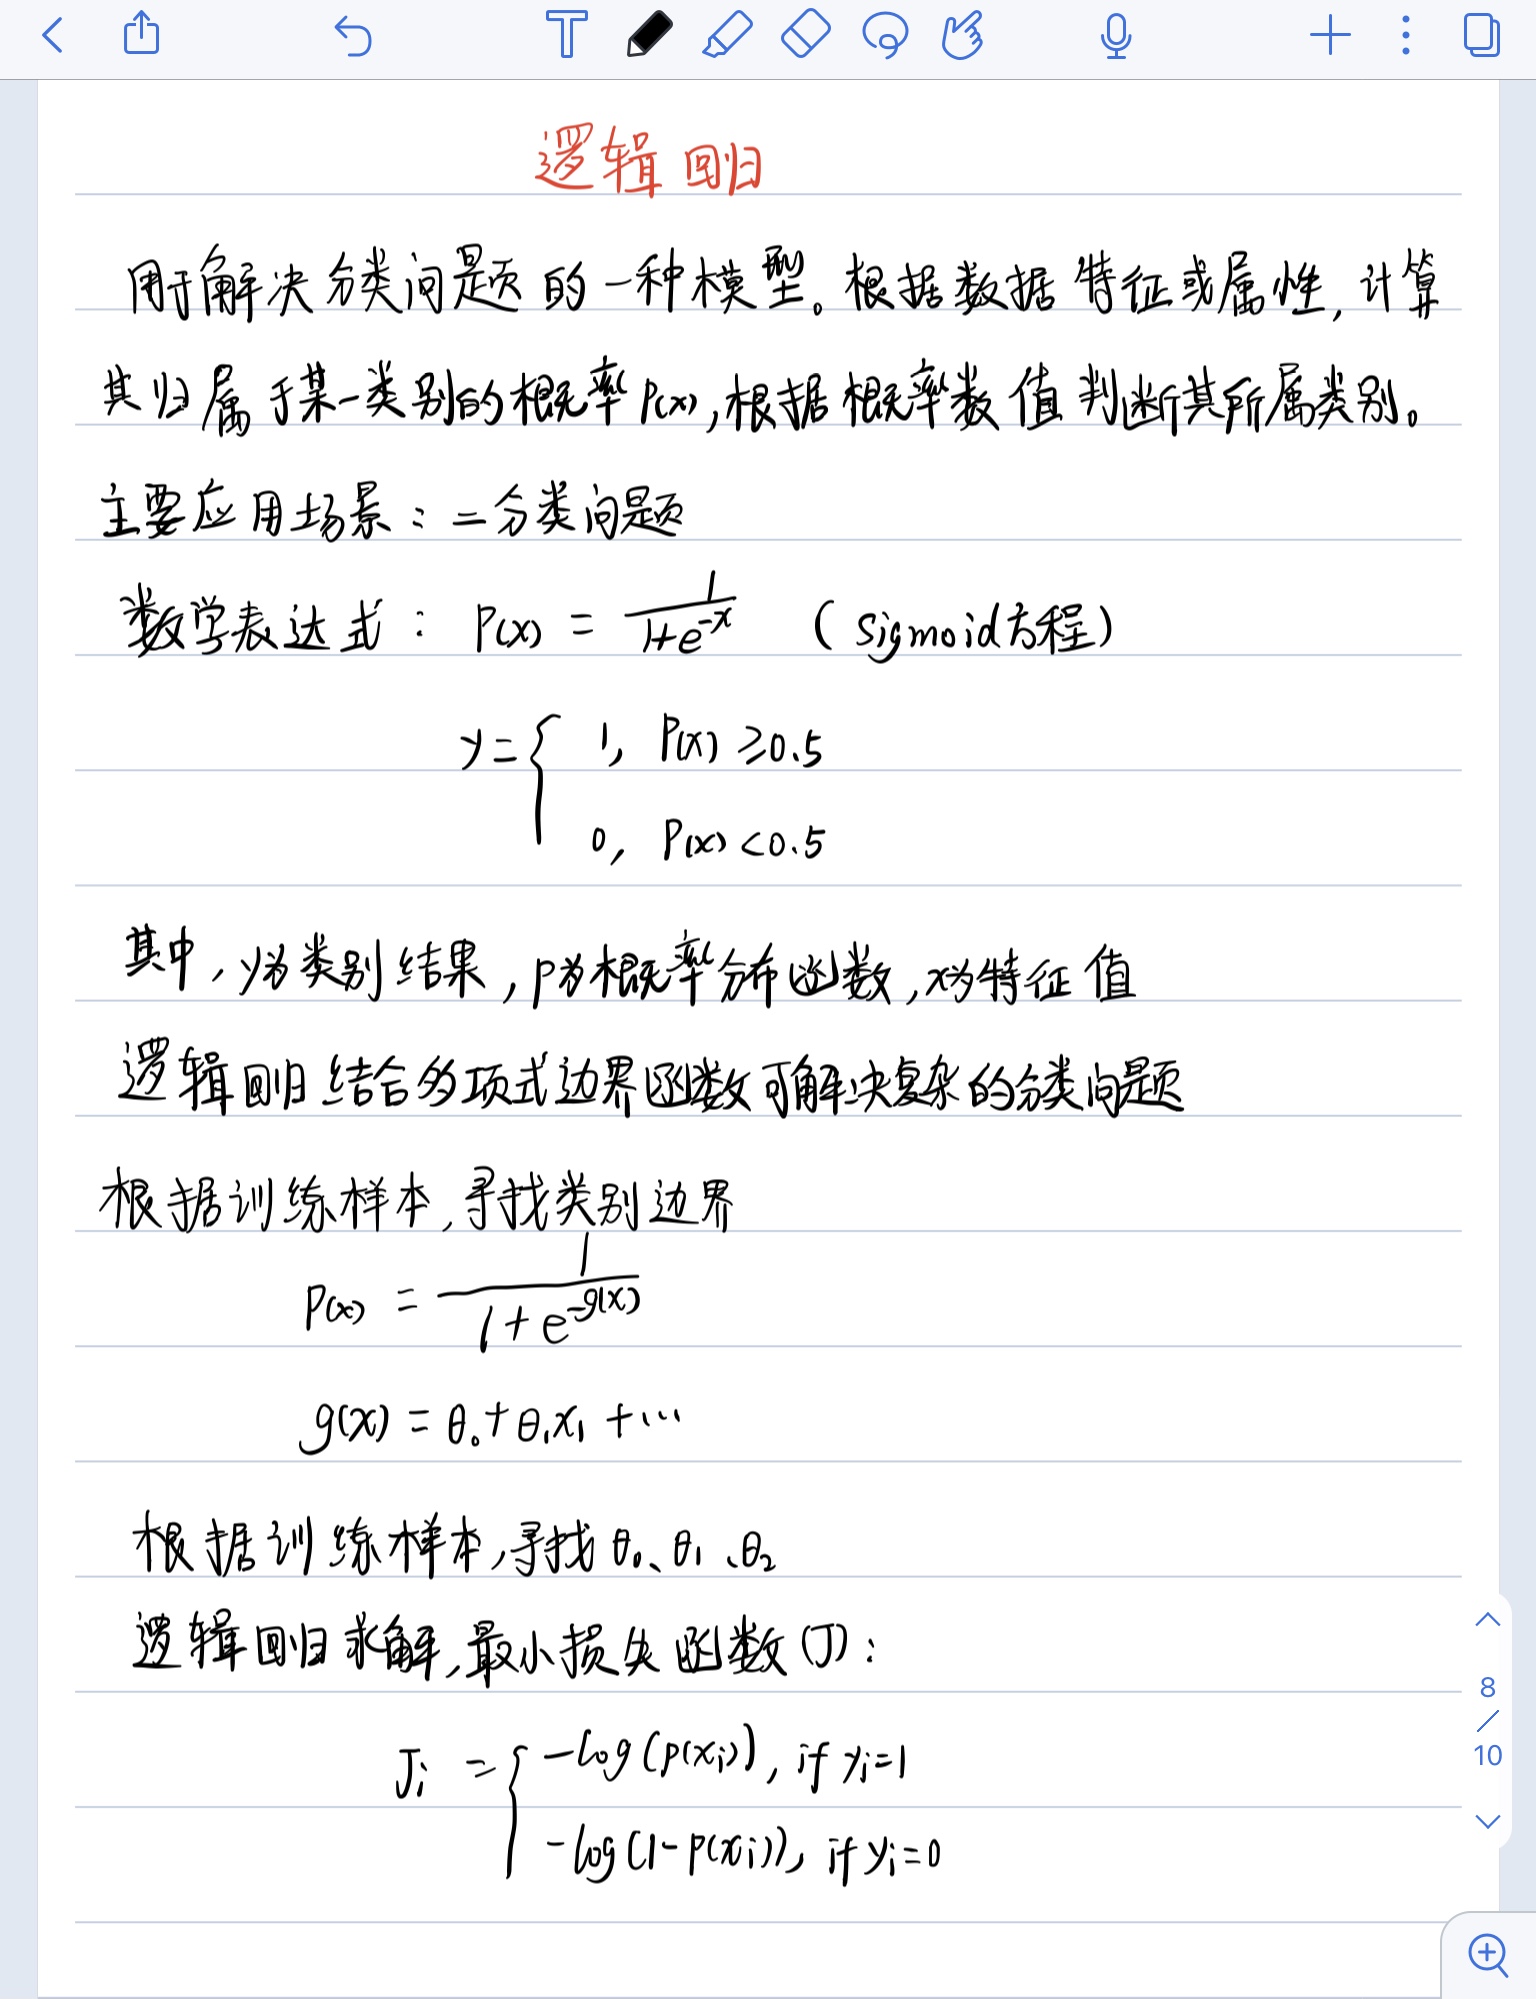 逻辑回归
用于解决分类问题的一种模型。根据数据特征或属性,计算
其归属于某一类别的概率P(x),根据概率数值判断其所属类别。
主要应用场景:二分类问题
数学表达式: P(x) = 1/(1+e^-x) (sigmoid方程)
y={ 1, P(x) ≥0.5
0, P(x) <0.5
其中,y为类别结果,P为概率分布函数,x为特征值
逻辑回归结合多项式边界函数可解决复杂的分类问题
根据训练样本,寻找类别边界
P(x) = 1/(1+e^-g(x))
g(x) = θ₀+θ₁x₁+…
根据训练样本,寻找θ₀、θ₁、θ₂
逻辑回归求解,最小损失函数(J):
Jᵢ ={ -log(p(xᵢ)), if yᵢ=1
-log(1-P(xᵢ)), if yᵢ=0
8
/
10